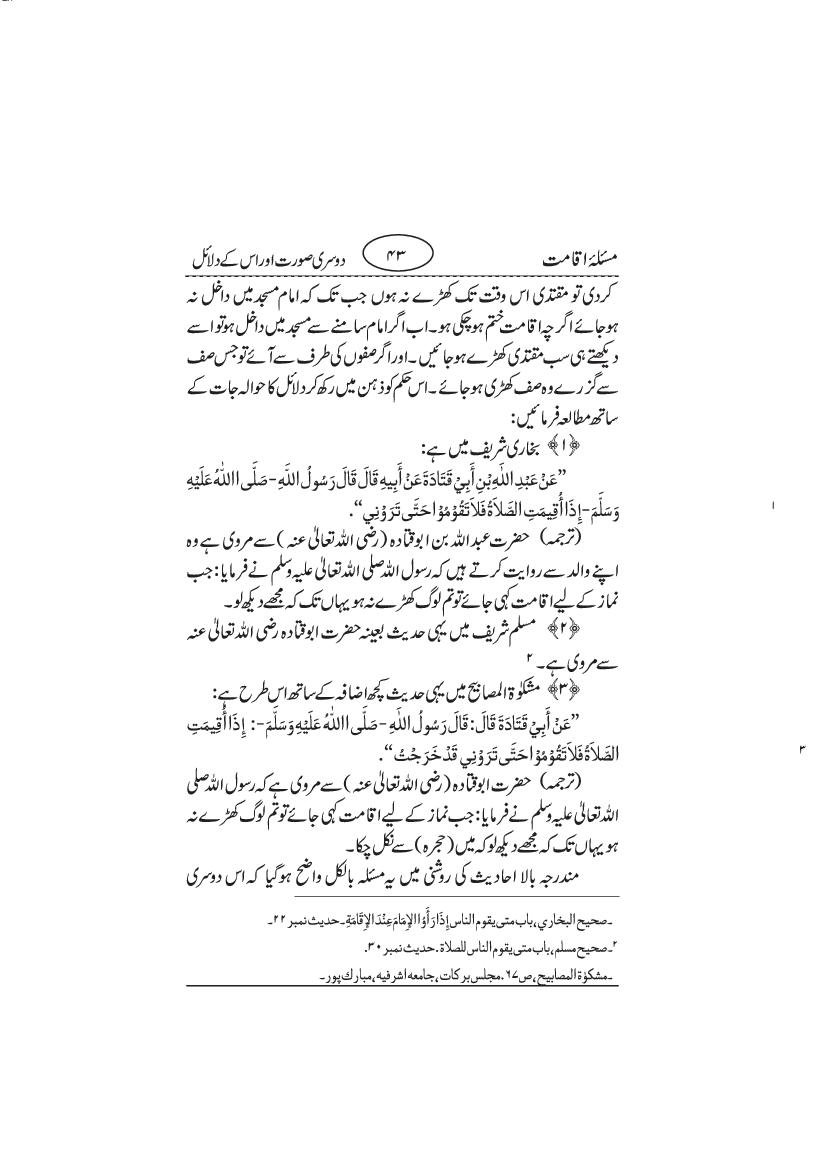 مسئلۂ اقامت ۴۳ دوسری صورت اور اس کے دلائل
کردی تو مقتدی اس وقت تک کھڑے نہ ہوں جب تک کہ امام مسجد میں داخل نہ
ہوجائے اگرچہ اقامت ختم ہوچکی ہو۔ اب اگر امام سامنے سے مسجد میں داخل ہو تو اسے
دیکھتے ہی سب مقتدی کھڑے ہوجائیں۔ اور اگر صفوں کی طرف سے آئے تو جس صف
سے گزرے وہ صف کھڑی ہوجائے۔ اس حکم کو ذہن میں رکھ کر دلائل کا حوالہ جات کے
ساتھ مطالعہ فرمائیں:
﴿۱﴾ بخاری شریف میں ہے:
”عَنْ عَبْدِ اللّٰهِ بْنِ أَبِيْ قَتَادَةَ عَنْ أَبِيهِ قَالَ قَالَ رَسُولُ اللَّهِ -صَلَّى اللّٰهُ عَلَيْهِ
وَسَلَّمَ- إِذَا أُقِيمَتِ الصَّلَاةُ فَلاَ تَقُوْمُوْا حَتَّى تَرَوْنِي“. ۱
(ترجمہ) حضرت عبد اللہ بن ابو قتادہ (رضی اللہ تعالیٰ عنہ) سے مروی ہے وہ
اپنے والد سے روایت کرتے ہیں کہ رسول اللہ صلی اللہ تعالیٰ علیہ وسلم نے فرمایا: جب
نماز کے لیے اقامت کہی جائے تو تم لوگ کھڑے نہ ہو یہاں تک کہ مجھے دیکھ لو۔
﴿۲﴾ مسلم شریف میں یہی حدیث بعینہ حضرت ابو قتادہ رضی اللہ تعالیٰ عنہ
سے مروی ہے۔ ۲
﴿۳﴾ مشکوٰۃ المصابیح میں یہی حدیث کچھ اضافہ کے ساتھ اس طرح ہے:
”عَنْ أَبِيْ قَتَادَةَ قَالَ: قَالَ رَسُوْلُ اللّٰهِ -صَلَّى اللّٰهُ عَلَيْهِ وَسَلَّمَ-: إِذَا أُقِيمَتِ
الصَّلاَةُ فَلاَ تَقُوْمُوْا حَتَّى تَرَوْنِي قَدْ خَرَجْتُ“. ۳
(ترجمہ) حضرت ابو قتادہ (رضی اللہ تعالیٰ عنہ) سے مروی ہے کہ رسول اللہ صلی
اللہ تعالیٰ علیہ وسلم نے فرمایا: جب نماز کے لیے اقامت کہی جائے تو تم لوگ کھڑے نہ
ہو یہاں تک کہ مجھے دیکھ لو کہ میں (حجرہ) سے نکل چکا۔
مندرجہ بالا احادیث کی روشنی میں یہ مسئلہ بالکل واضح ہوگیا کہ اس دوسری
۔صحيح البخاري، باب متى يقوم الناس إِذَا رَأَوُا الإِمَامَ عِنْدَ الإِقَامَةِ۔ حدیث نمبر ۲۲۔
۲۔صحيح مسلم، باب متى يقوم الناس للصلاة. حدیث نمبر ۳۰.
۔مشکوٰۃ المصابیح، ص ۶۷. مجلس برکات، جامعہ اشرفیہ، مبارک پور۔